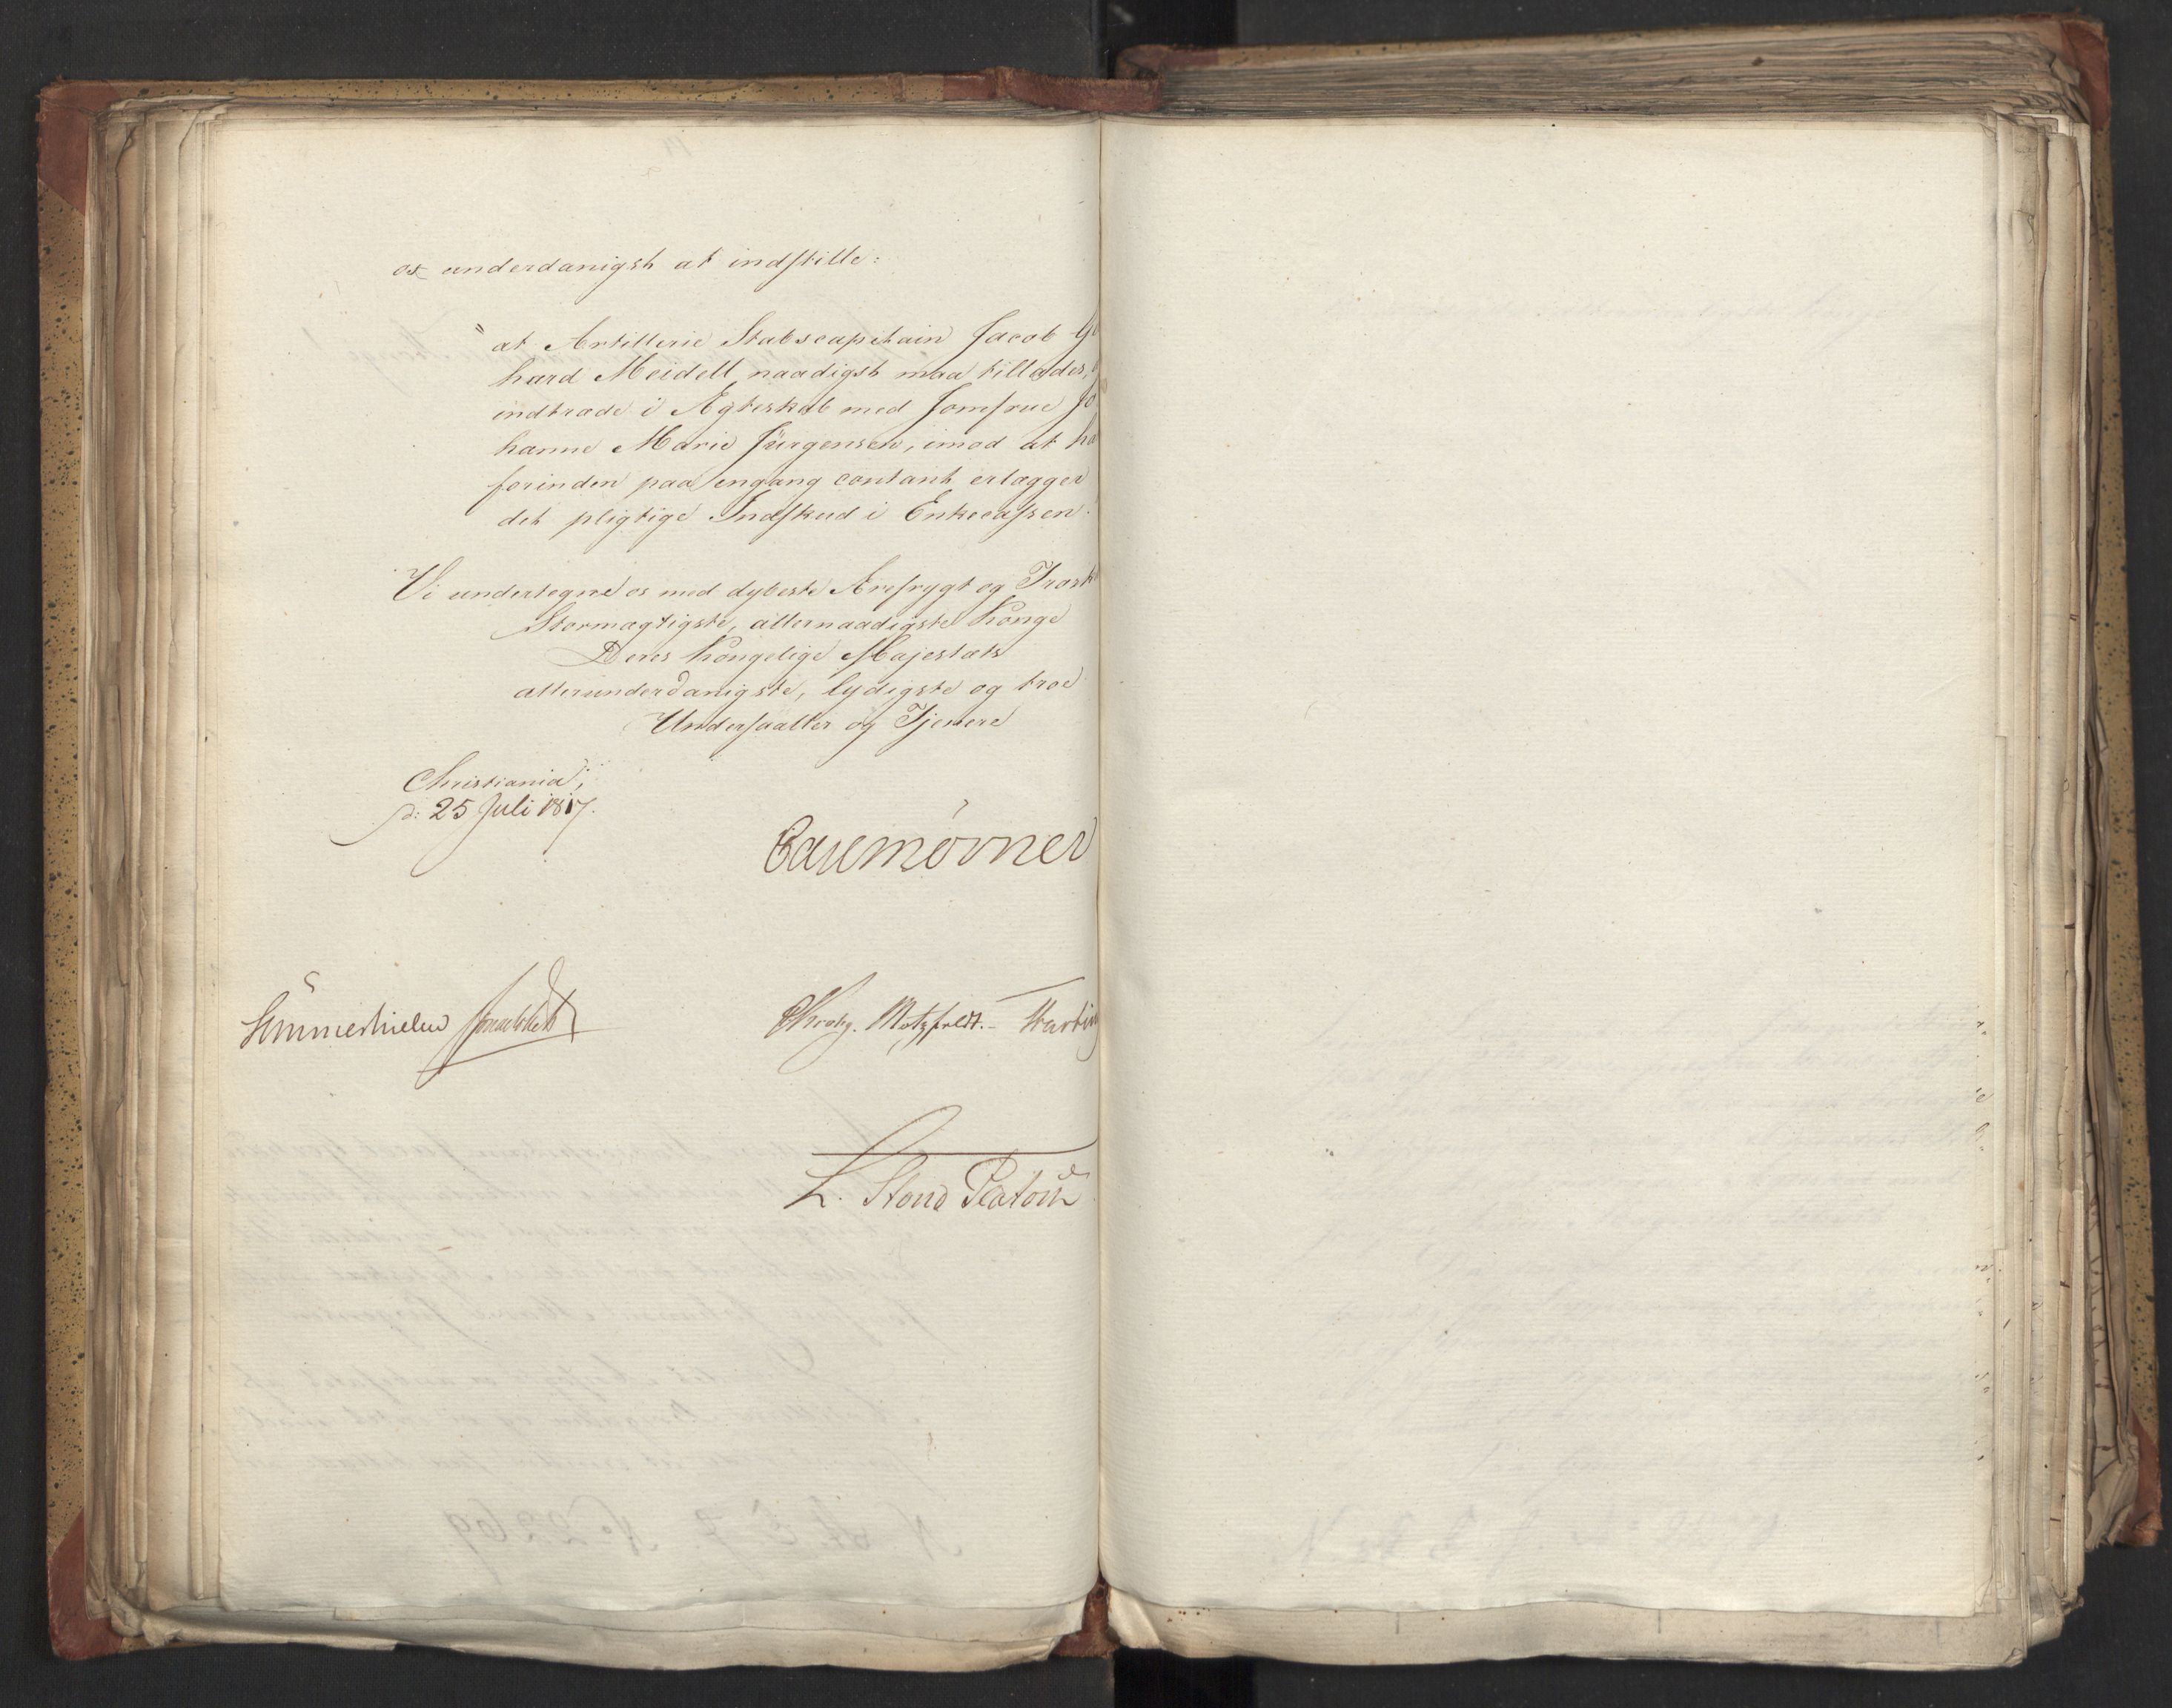 os underdanigst at indstille:
"at Artillerie Stabscapitain Jacob Ge
hard Meidell naadigst maa tillades,
indtræde i Ægteskab med Jomfrue Jo
hanne Marie Jürgensen, imod at ha
forinden paa engang contant erlægger
det pligtige Indskud i Enkecassen.
Vi undertegne os med dybeste Ærefrygt og Trosk
Stormægtigste, allernaadigste Konge
Deres Kongelige Majestæts
allerunderdanigste, lydigste og troe
Undersaatter og Tjenere
Christiania,
d: 25 Juli 1817.
Carl Mörner
Sommerhielm
Krohg. Motzfeldt. Hartin
L. Stoud Platou
N. A. E. J. No 2269